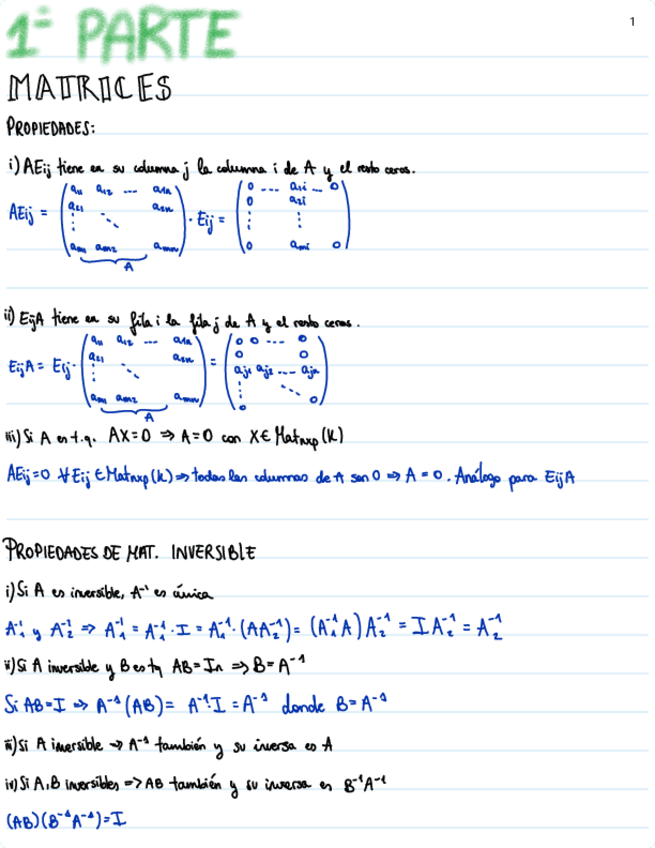 1
1ª PARTE
MATRICES
PROPIEDADES:
i) AEij tiene en su columna j la columna i de A y el resto ceros.
AEij = ( a11 a12 --- a1n
a21 ⋱ a2n
⋮
am1 am2 amn ) · Eij = ( 0 --- a1i --- 0
0 a2i
⋮ ⋮
0 ami 0 )
A
ii) EijA tiene en su fila i la fila j de A y el resto ceros.
EijA = Eij · ( a11 a12 --- a1n
a21 ⋱ a2n
⋮
am1 am2 amn ) = ( 0 0 --- 0
0 0
aj1 aj2 --- ajn
⋮ ⋱
0 0 )
A
iii) Si A es t.q. AX=0 ⇒ A=0 con X∈ Matnxp(K)
AEij=0 ∀Eij ∈Matnxp(K) ⇒ todas las columnas de A son 0 ⇒ A=0. Análogo para EijA
PROPIEDADES DE MAT. INVERSIBLE
i) Si A es inversible, A⁻¹ es única
A₁⁻¹ y A₂⁻¹ ⇒ A₁⁻¹ = A₁⁻¹·I = A₁⁻¹·(AA₂⁻¹) = (A₁⁻¹A)A₂⁻¹ = IA₂⁻¹ = A₂⁻¹
ii) Si A inversible y B es tq AB=In ⇒ B=A⁻¹
Si AB=I ⇒ A⁻¹(AB) = A⁻¹I = A⁻¹ donde B=A⁻¹
iii) Si A inversible ⇒ A⁻¹ también y su inversa es A
iv) Si A,B inversibles => AB también y su inversa es B⁻¹A⁻¹
(AB)(B⁻¹A⁻¹)=I